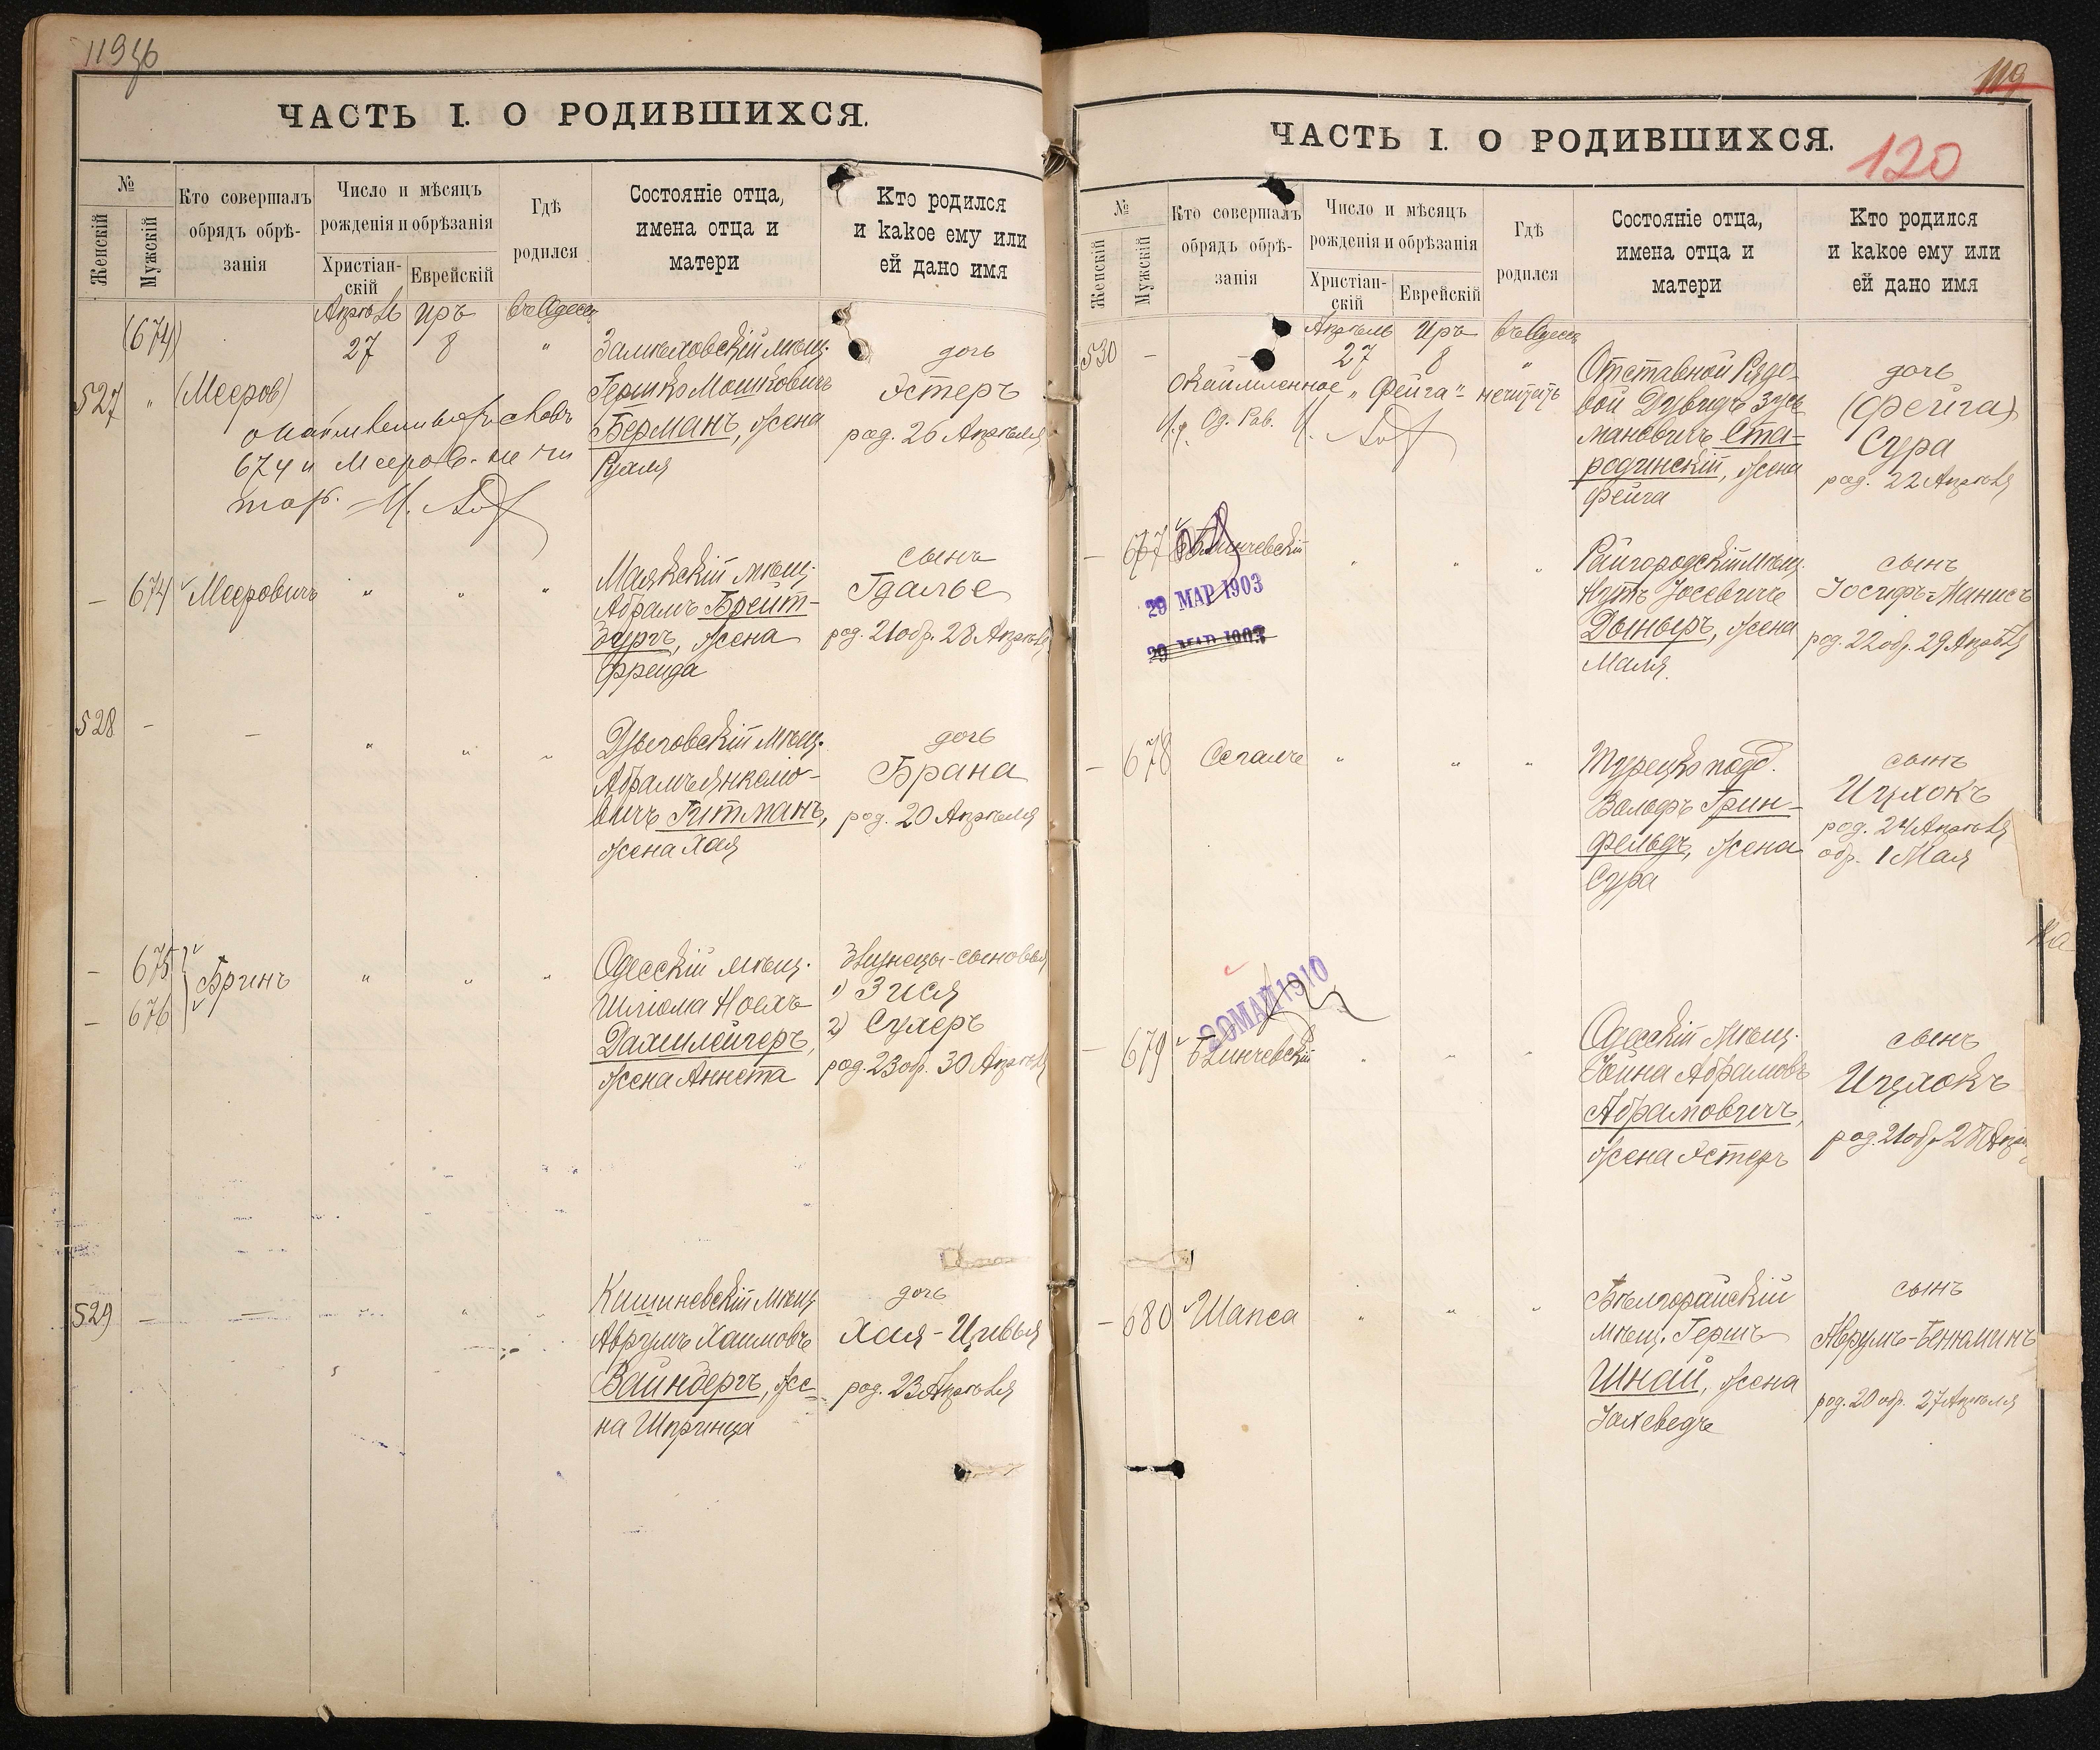 119
ЧАСТЬ I. О РОДИВШИХСЯ.
№
Женскій
Мужскій
Кто совершалъ
обрядъ обрѣ-
занія
Число и мѣсяцъ
рожденія и обрѣзанія
Христіан-
скій
Еврейскій
Гдѣ
родился
Состояніе отца,
имена отца и
матери
Кто родился
и какое ему или
ей дано имя
(674)
Апрѣль Иръ въ Одессѣ
27 8 "
527 " (Мееров)
674 и Мееров. не чи
тать.
Замѣховскій мѣщ.
Гершко Мошковичъ
Берманъ, жена
Рухля
дочь
Эстеръ
род. 26 Апрѣля
— 674 Мееровичъ " " "
Маякскій мѣщ.
Абрамъ Брейт-
бургъ, жена
Фрейда
сынъ
Гдалье
род. 21 обр. 28 Апрѣля
528 — — " " "
мѣщ.
Абрамъ Янкелю-
вичъ Гитманъ,
жена Хая
дочь
Брана
род. 20 Апрѣля
— 675
— 676
Бринъ " " "
Одесскій мѣщ.
Шліома Ноехъ
Дахшлейгеръ,
жена Аннета
Двунецы-сыновья
1) Зися
2) Сухеръ
род. 23 обр. 30 Апрѣля
529 — — " "
Кишиневскій мѣщ.
Аврумъ Хаимовъ
Вайнбергъ, же-
на Шпринца
дочь
Хая-Цивья
род. 23 Апрѣля
119
120
ЧАСТЬ I. О РОДИВШИХСЯ.
№
Женскій
Мужскій
Кто совершалъ
обрядъ обрѣ-
занія
Число и мѣсяцъ
рожденія и обрѣзанія
Христіан-
скій
Еврейскій
Гдѣ
родился
Состояніе отца,
имена отца и
матери
Кто родился
и какое ему или
ей дано имя
Апрѣль Иръ въ Одессѣ
530 — 27 8 "
Окаймленное "Фейга" нечитать
Од. Рав.
Отставной Рядо-
вой Дувидъ Зусь
мановичъ Ста-
родинскій, жена
Фейга
дочь
(Фейга)
Сура
род. 22 Апрѣля
— 677 Блинчевскій " " "
29 МАР 1903
29 МАР 1903
Райгородскій мѣщ.
Нутъ Іосевичъ
Дыныръ, жена
Маля.
сынъ
Іосифъ-Манисъ
род. 22 обр. 29 Апрѣля
— 678 Сегалъ " " "
Турецко подд.
Вольфъ Грин-
фельдъ, жена
Сура
сынъ
Ицхокъ
род. 24 Апрѣля
обр. 1 Мая
20 МАЙ 1910
— 679 Блинчевскій " " "
Одесскій мѣщ.
Іойна Абрамовъ
Абрамовичъ,
жена Эстеръ
сынъ
Ицхокъ
род. 21 обр 28 Апрѣ
— 680 Шапса " " "
Бѣлгорайскій
мѣщ. Гершъ
Шнай, жена
Іохеведъ
сынъ
Аврумъ-Бенюминъ
род. 20 обр. 27 Апрѣля